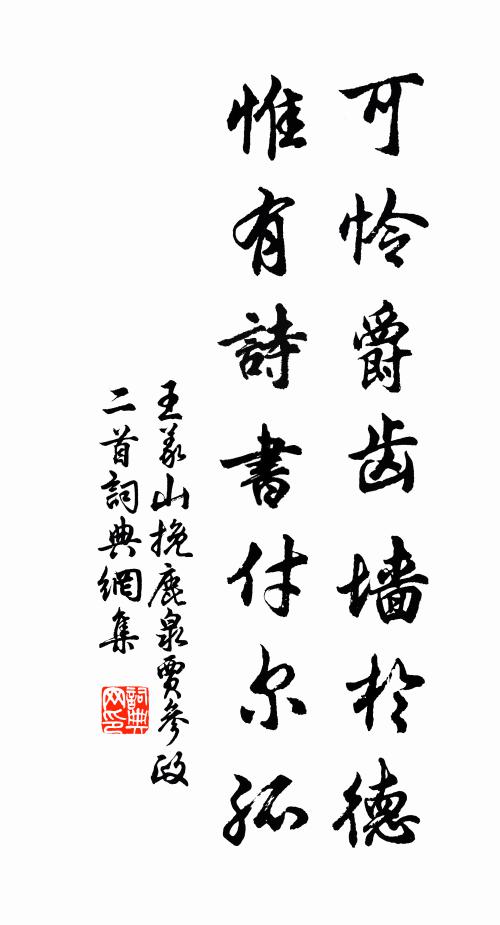 可怜爵齿墙於德
惟有詩書付尔孤
王义山挽鹿泉贾參政
二首詞典網集
詞典网印